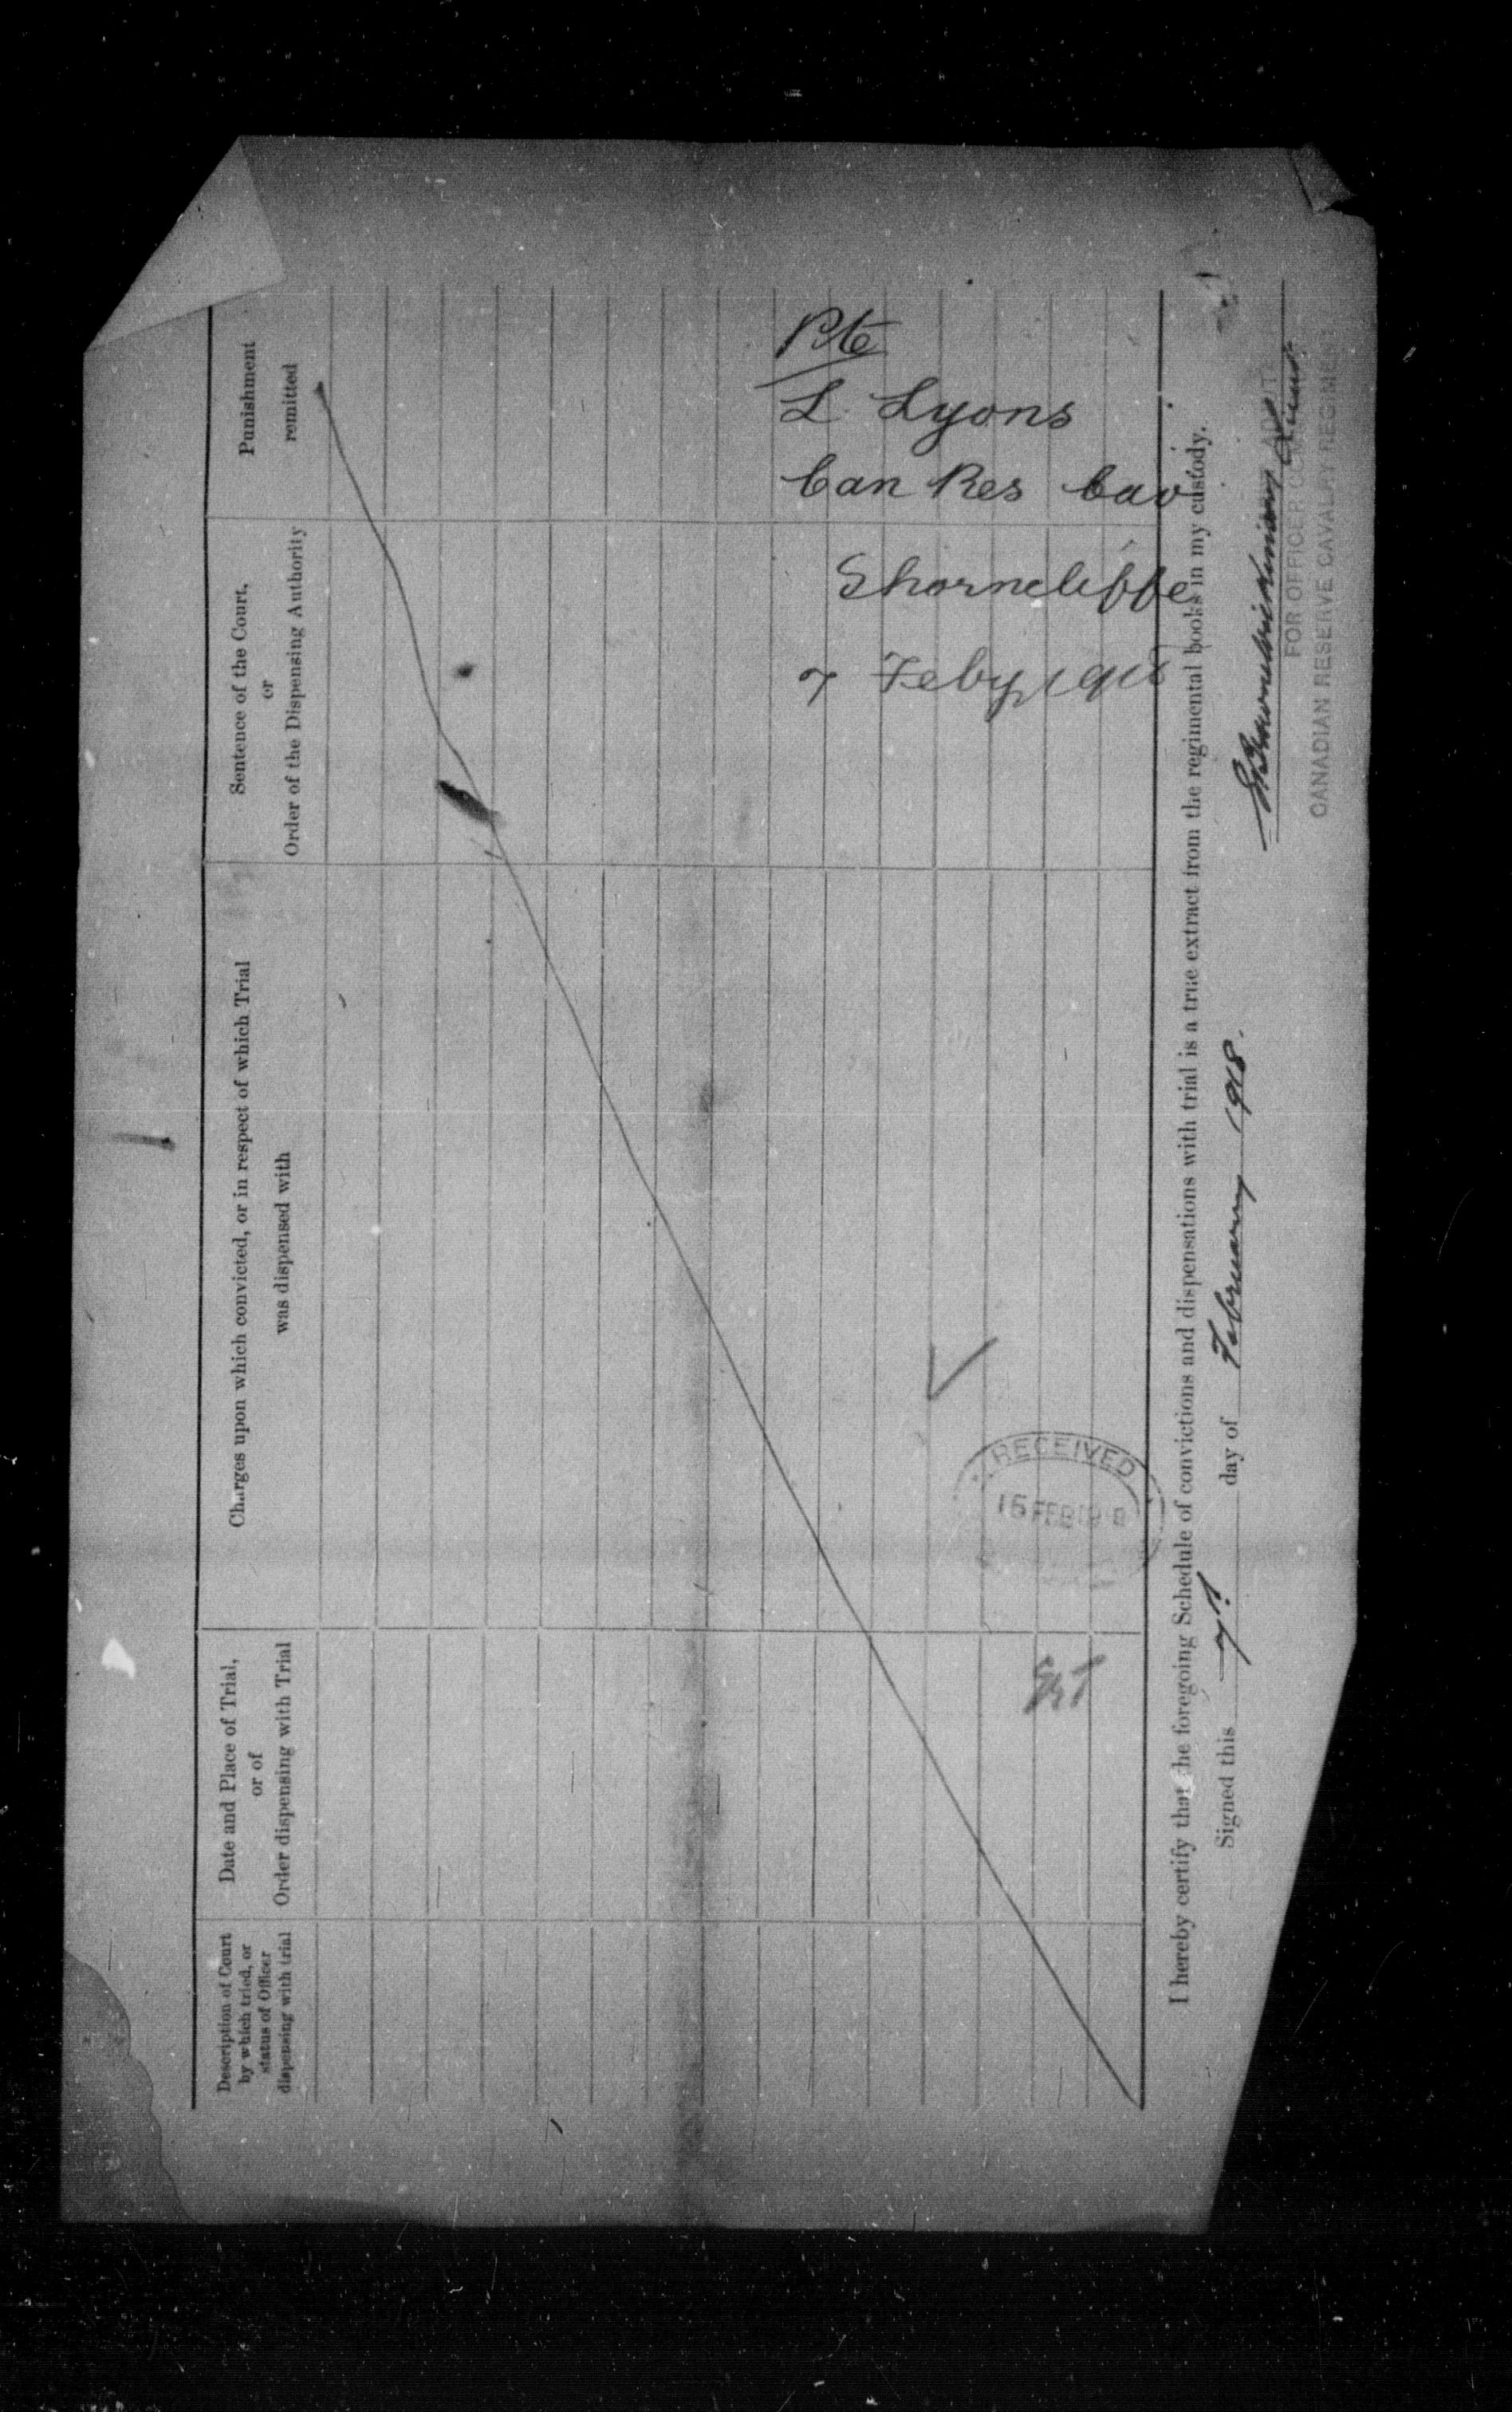 Description of Court
by which tried, or
status of Officer
dispensing with trial
Date and Place of Trial,
or of
Order dispensing with Trial
Charges upon which convicted, or in respect of which Trial
was dispensed with
Sentence of the Court,
or
Order of the Dispensing Authority
Punishment
remitted
Pte
L Lyons
Can Res Cav
Shorncliffe
7 Feby 1918
RECEIVED
I hereby certify that the foregoing Schedule of convictions and dispensations with trial is a true extract from the regimental books in my custody.
Signed this 7th day of February 1918.
FOR OFFICER
CANADIAN RESERVE CAVALRY REGIMENT